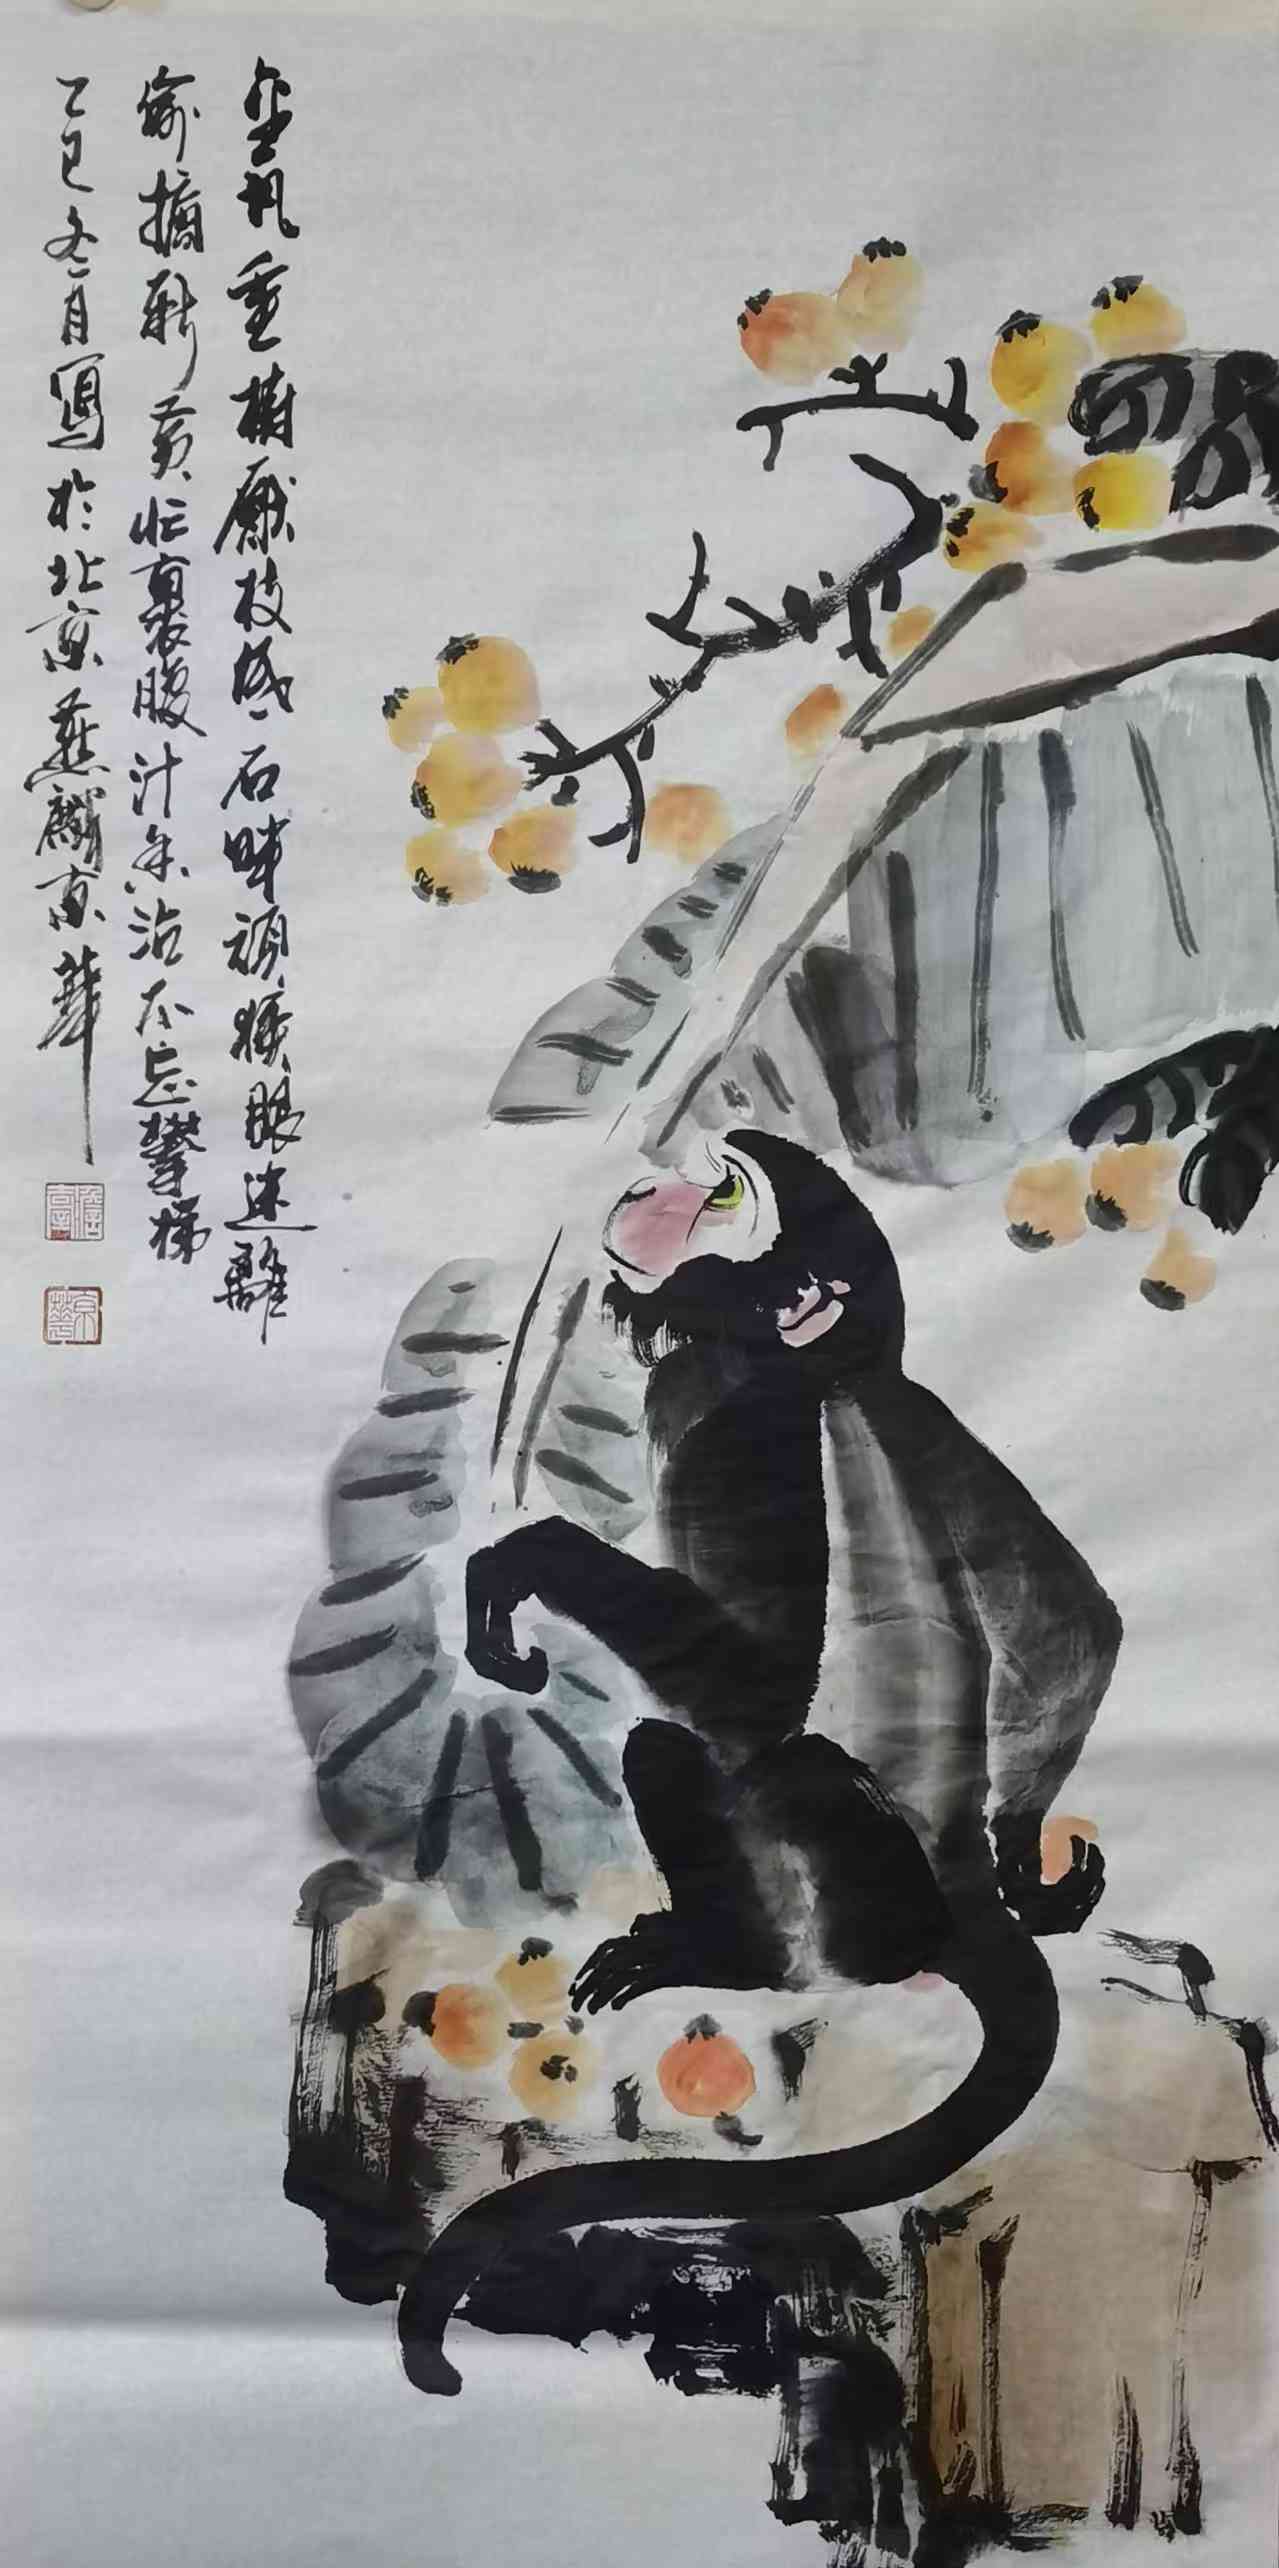 金重樹壓枝低石畔頑猴眼迷離
偷摘新黃忙裹腹汁沾不忘攀梯
乙巳冬月寫於北京燕麟京華
京華